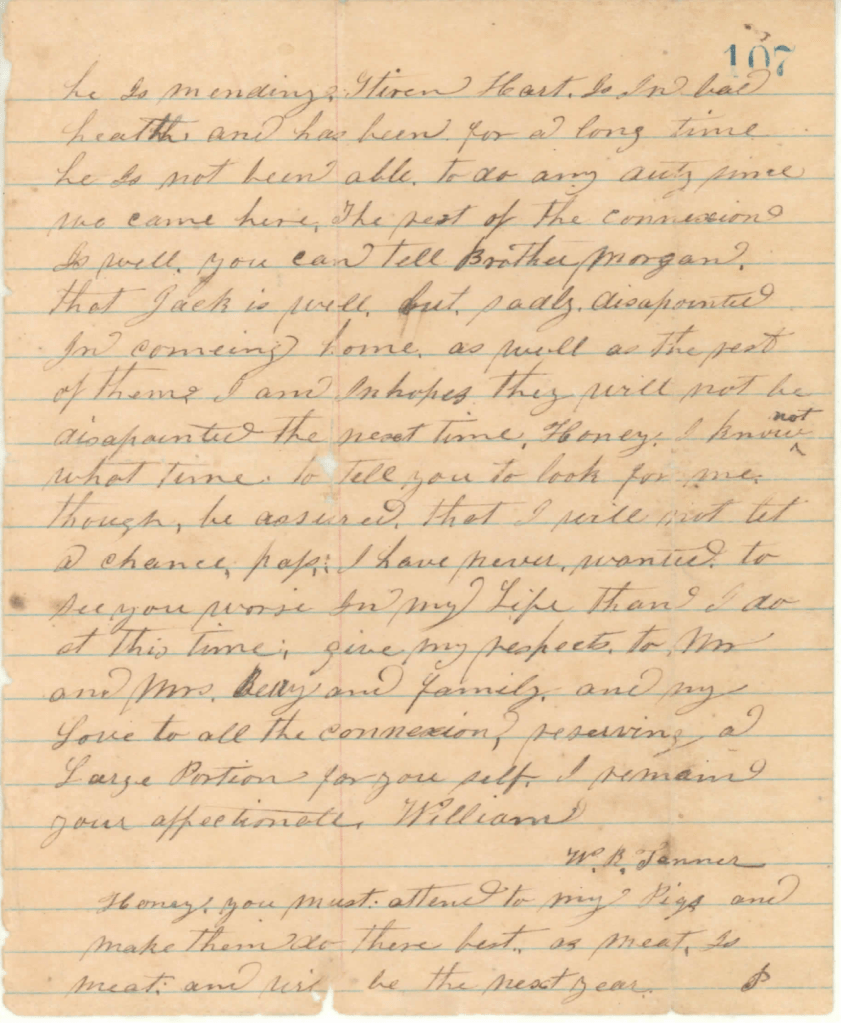 107
he Is mending, Stiren Hart. Is In bad
health. and has been for a long time
he Is not been able. to do any duty since
we came here, The rest of the connexion
Is well. you can tell Brother Morgan.
that Jack is well. but. sadly. disapointed
In comeing home. as well as the rest
of them, I am Inhopes they will not be
disapointed the next time, Honey. I know not
what time. to tell you to look for me.
though, be assured. that I will not let
a chance, pass; I have never, wanted. to
see you worse In my Life than I do
at this time; give my respects. to Mr
and Mrs. Belly and family. and my
Love to all the connexion, reserving a
Large Portion for you self. I remain
your affectionate. William
W. R. Tanner
Honey. you must. attend to my Pigs and
make them do there best.. as meat. Is
meat. and will be the next year.